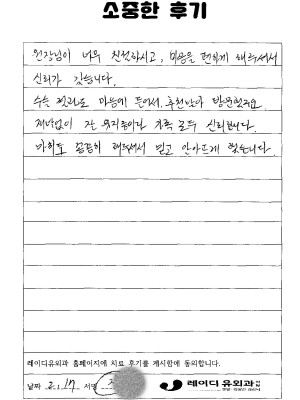 소중한 후기
원장님이 너무 친절하시고, 마음을 편하게 해주셔서
신뢰가 갔습니다.
수술 결과도 마음에 들어서, 추천받아 방문했지요.
재발없이 잘 유지중이라 가족 모두 신뢰합니다.
마취도 꼼꼼히 해주셔서 믿고 안아프게 했습니다.
레이디유외과 홈페이지에 치료 후기를 게시함에 동의합니다.
날짜 2. 17 서명
레이디 유외과